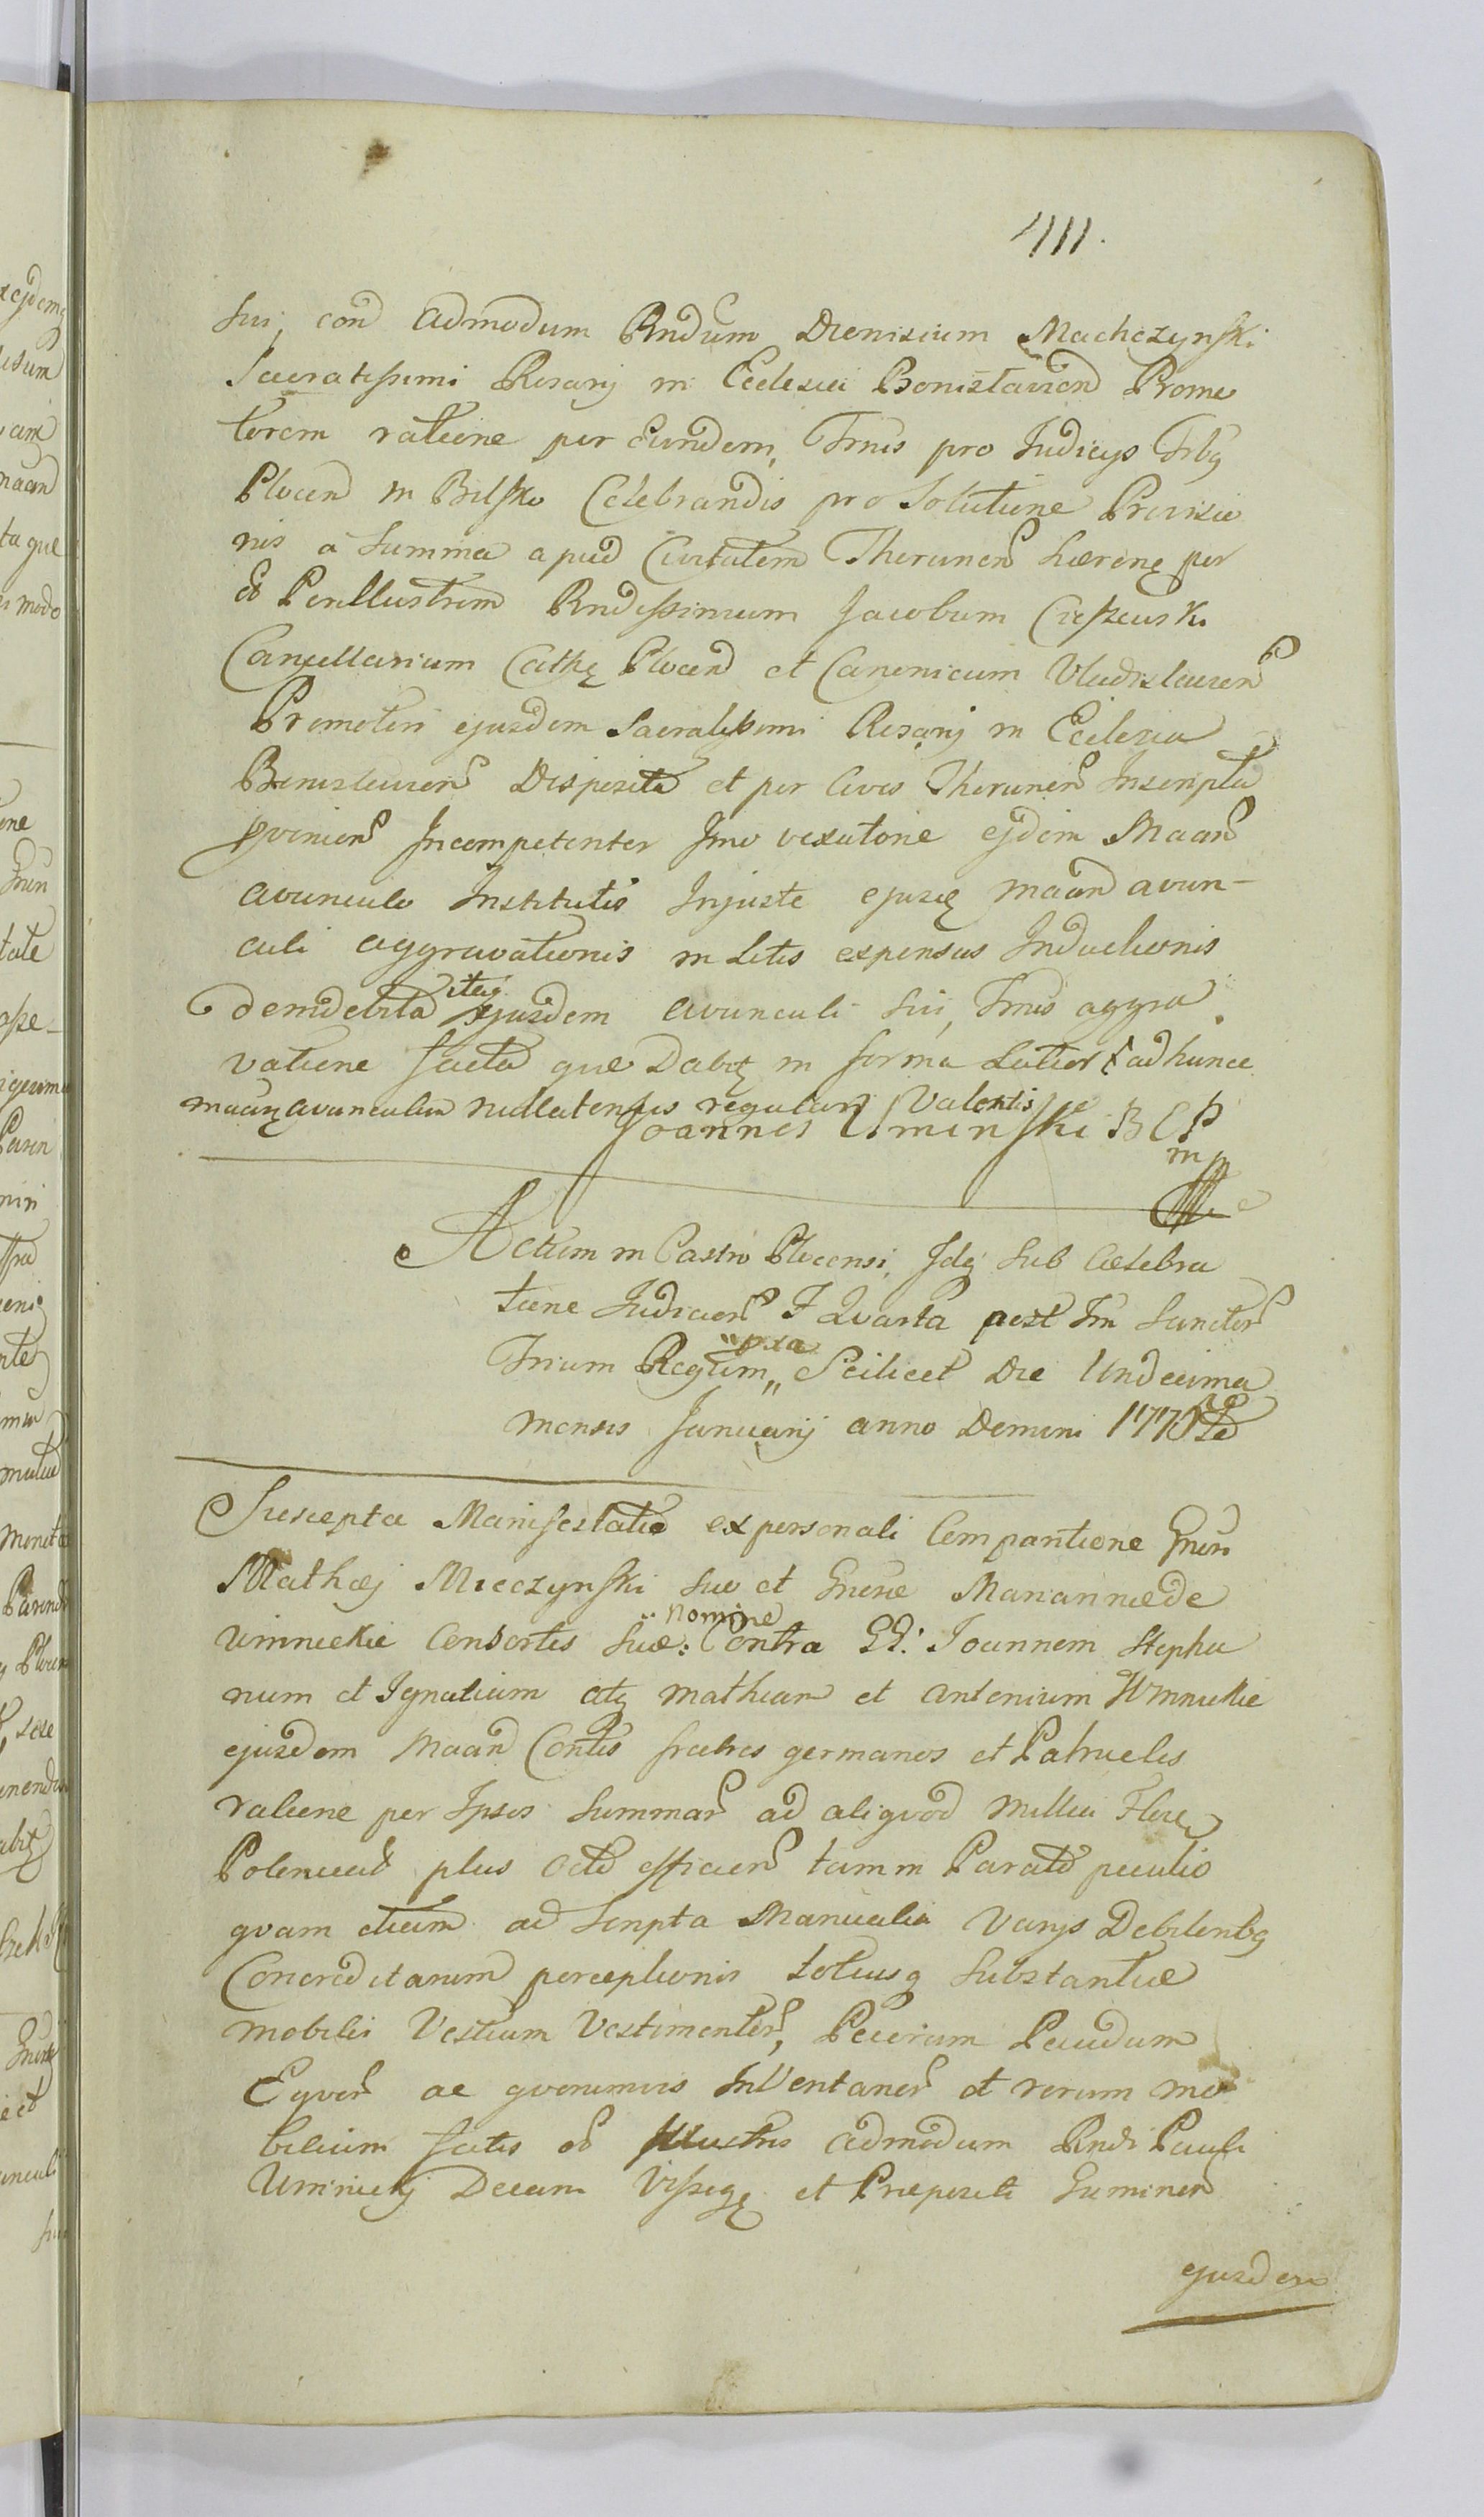 1111.
Sui, con Admodum Rndum Dionisium Machczynski
Sacratissimi Rosarij in Ecclesia Bonislavien Promo
torem ratione per Eundem, Trnis pro Judicijs Trbq
Plocen in Bilsko Celebrandis pro Solutione Provisio
nis a Summa apud Civitatem Thorunen hæren per
et Perillustrem Rndissimum Jacobum
Cancellarium Cathę Plocen et Canonicum Vladislavien
Promotori ejusdem Sacratissimi Rosarij in Ecclesia
Bonislavien Disposita et per Cives Thorunen Inscripta
pvenien Incompetenter Imo vexatorie ejdem Maan
avunculo Institutis Injuste ejusq maan avun-
culi aggravationis in Litis expensas Inductionis
demdebita itaq ejusdem avunculi Sui, Trnis aggra
vatione facta que Dabq in forma Latior adhunc
maanq avunculum nullatenus regulari Valentis
Joannes Uminski B C P
mp
Actum in Castro Plocensi, Idq Sub Cælebra
tione Judicior F Quarta post Fm Sanctor
Trium Regum „pxa„ Scilicet Die Undecima
mensis Januarij anno Domini
Suscepta Manifestatio ex personali Comparitione Gnen
Mathæj Mieczynski suo et Gnesæ Mariannæ de
Umnickie Consortis Suæ: nomine Contra GG: Joannem Stepha
num et Ignatium atq Mathiam et Antonium Umnickie
ejusdem Maan Contis fratres germanos et Patrueles
ratione per Ipsos Summar ad aliqvod millia Flore
Polonical plus Octo efficien tam in Parato peculio
qvam etiam ad Scripta Manualia Varys Debitoribq
Concreditarum perceptionis totiusq Substantiæ
mobilis Vestium Vestimentor, Pecorum Pecudum
Eqvor ac qvorumvis InVentarior et rerum mo
bilium fatis ol Illustris admodum Rndi Pauli
Umnickj Decani Vissogę et Præpositi Guminen
ejusdem